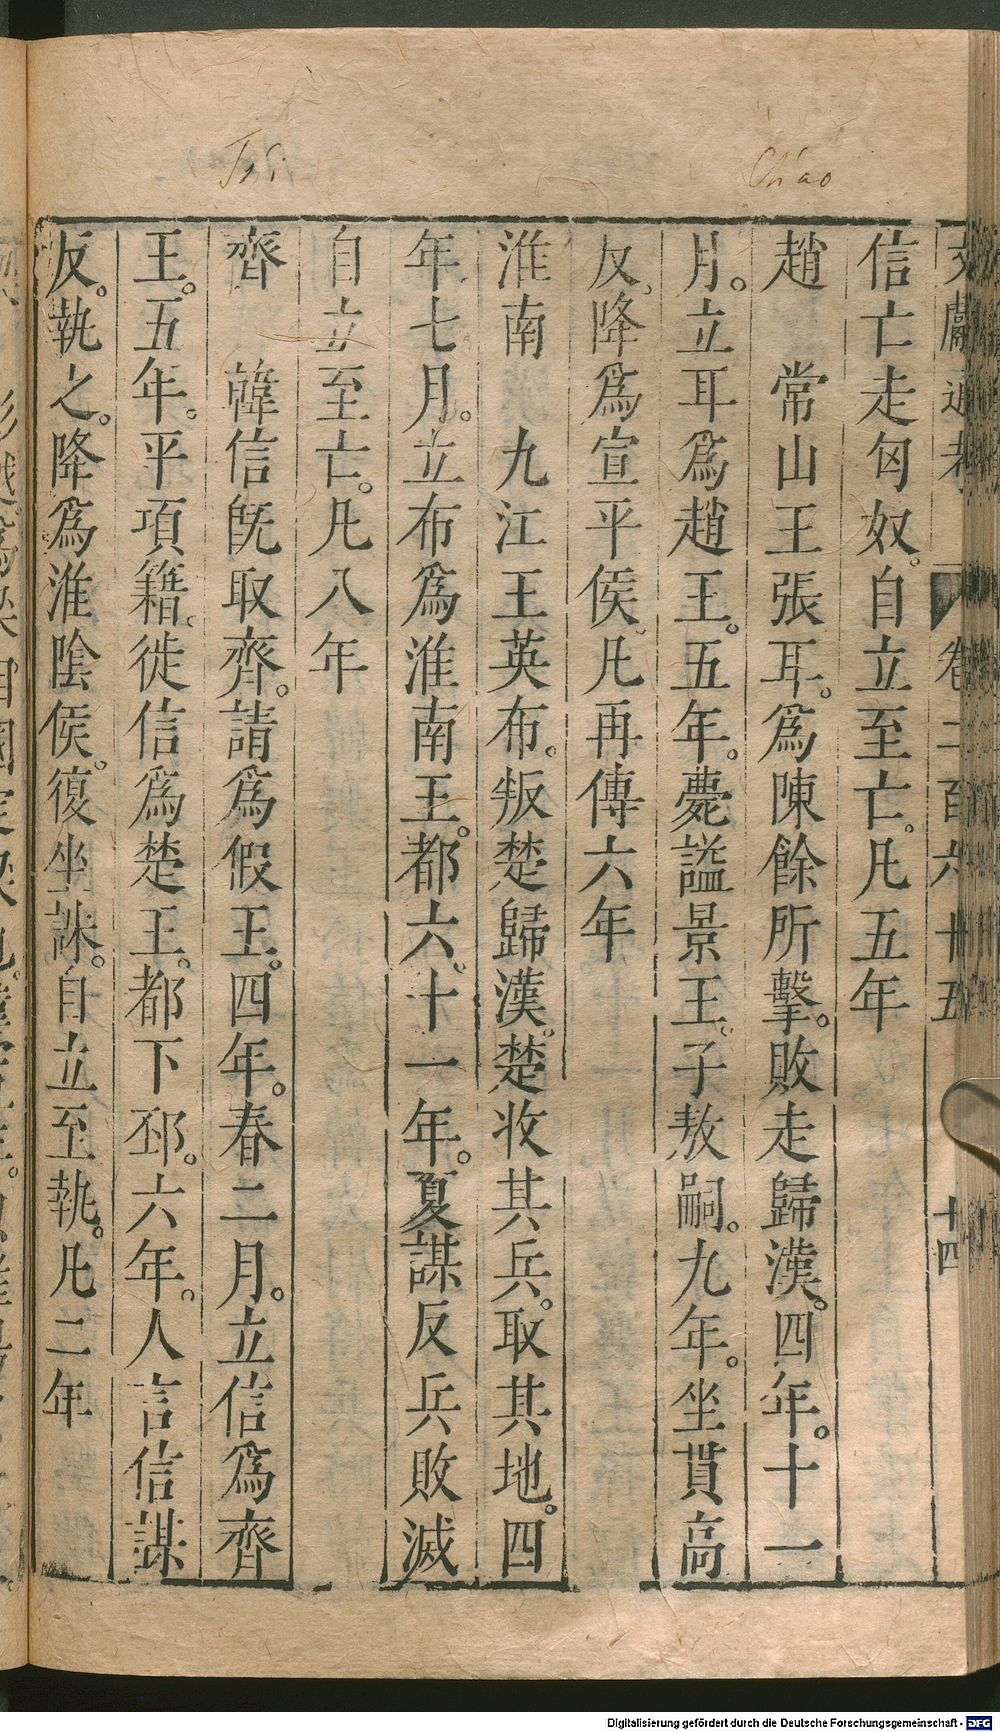 Chao
Tsi
文獻通考 卷二百六十五 十四
信亡走匈奴。自立至亡。凡五年
趙 常山王張耳。為陳餘所擊。敗走歸漢。四年。十一
月。立耳為趙王。五年。薨謚景王。子敖嗣。九年。坐貫高
反。降為宣平侯。凡再傳六年
淮南 九江王英布。叛楚歸漢。楚收其兵。取其地。四
年七月。立布為淮南王。都六。十一年。夏謀反兵敗滅
自立至亡。凡八年
齊 韓信既取齊。請為假王。四年。春二月。立信為齊
王。五年。平項籍。徙信為楚王。都下邳。六年。人言信謀
反。執之。降為淮陰侯。復坐誅。自立至執。凡二年
Digitalisierung gefördert durch die Deutsche Forschungsgemeinschaft - DFG